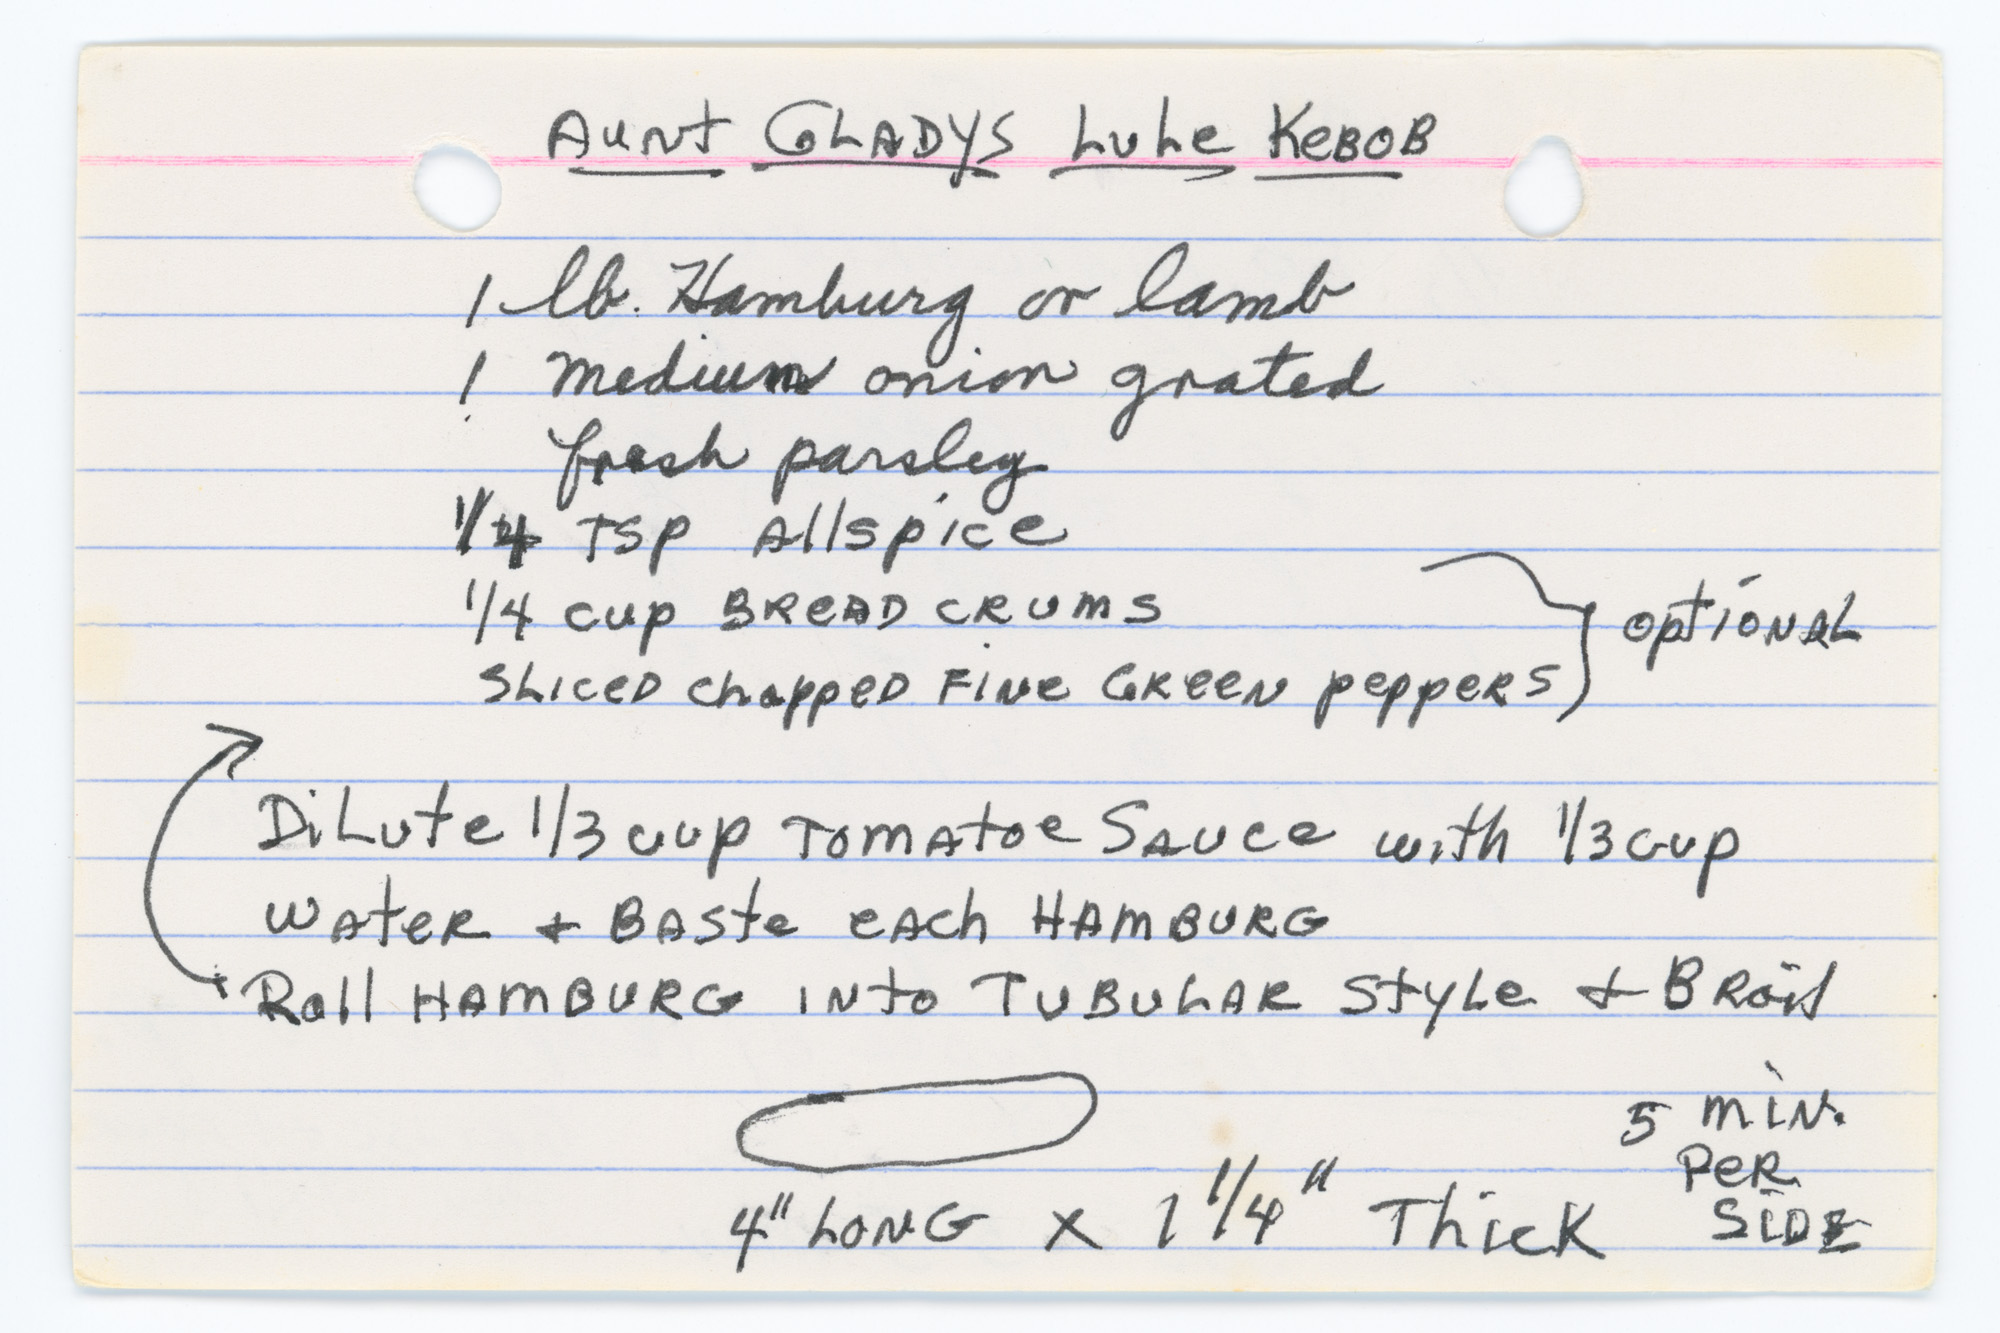 Aunt Gladys Lule Kebob
1 lb. Hamburg or lamb
1 medium onion grated
fresh parsley
1/4 TSP Allspice
1/4 cup Bread crums
Sliced chopped Fine Green peppers
optional
Dilute 1/3 cup Tomatoe Sauce with 1/3 cup
water + Baste each Hamburg
Roll Hamburg into Tubular Style + Broil
5 min.
Per
Side
4" Long x 1 1/4" Thick